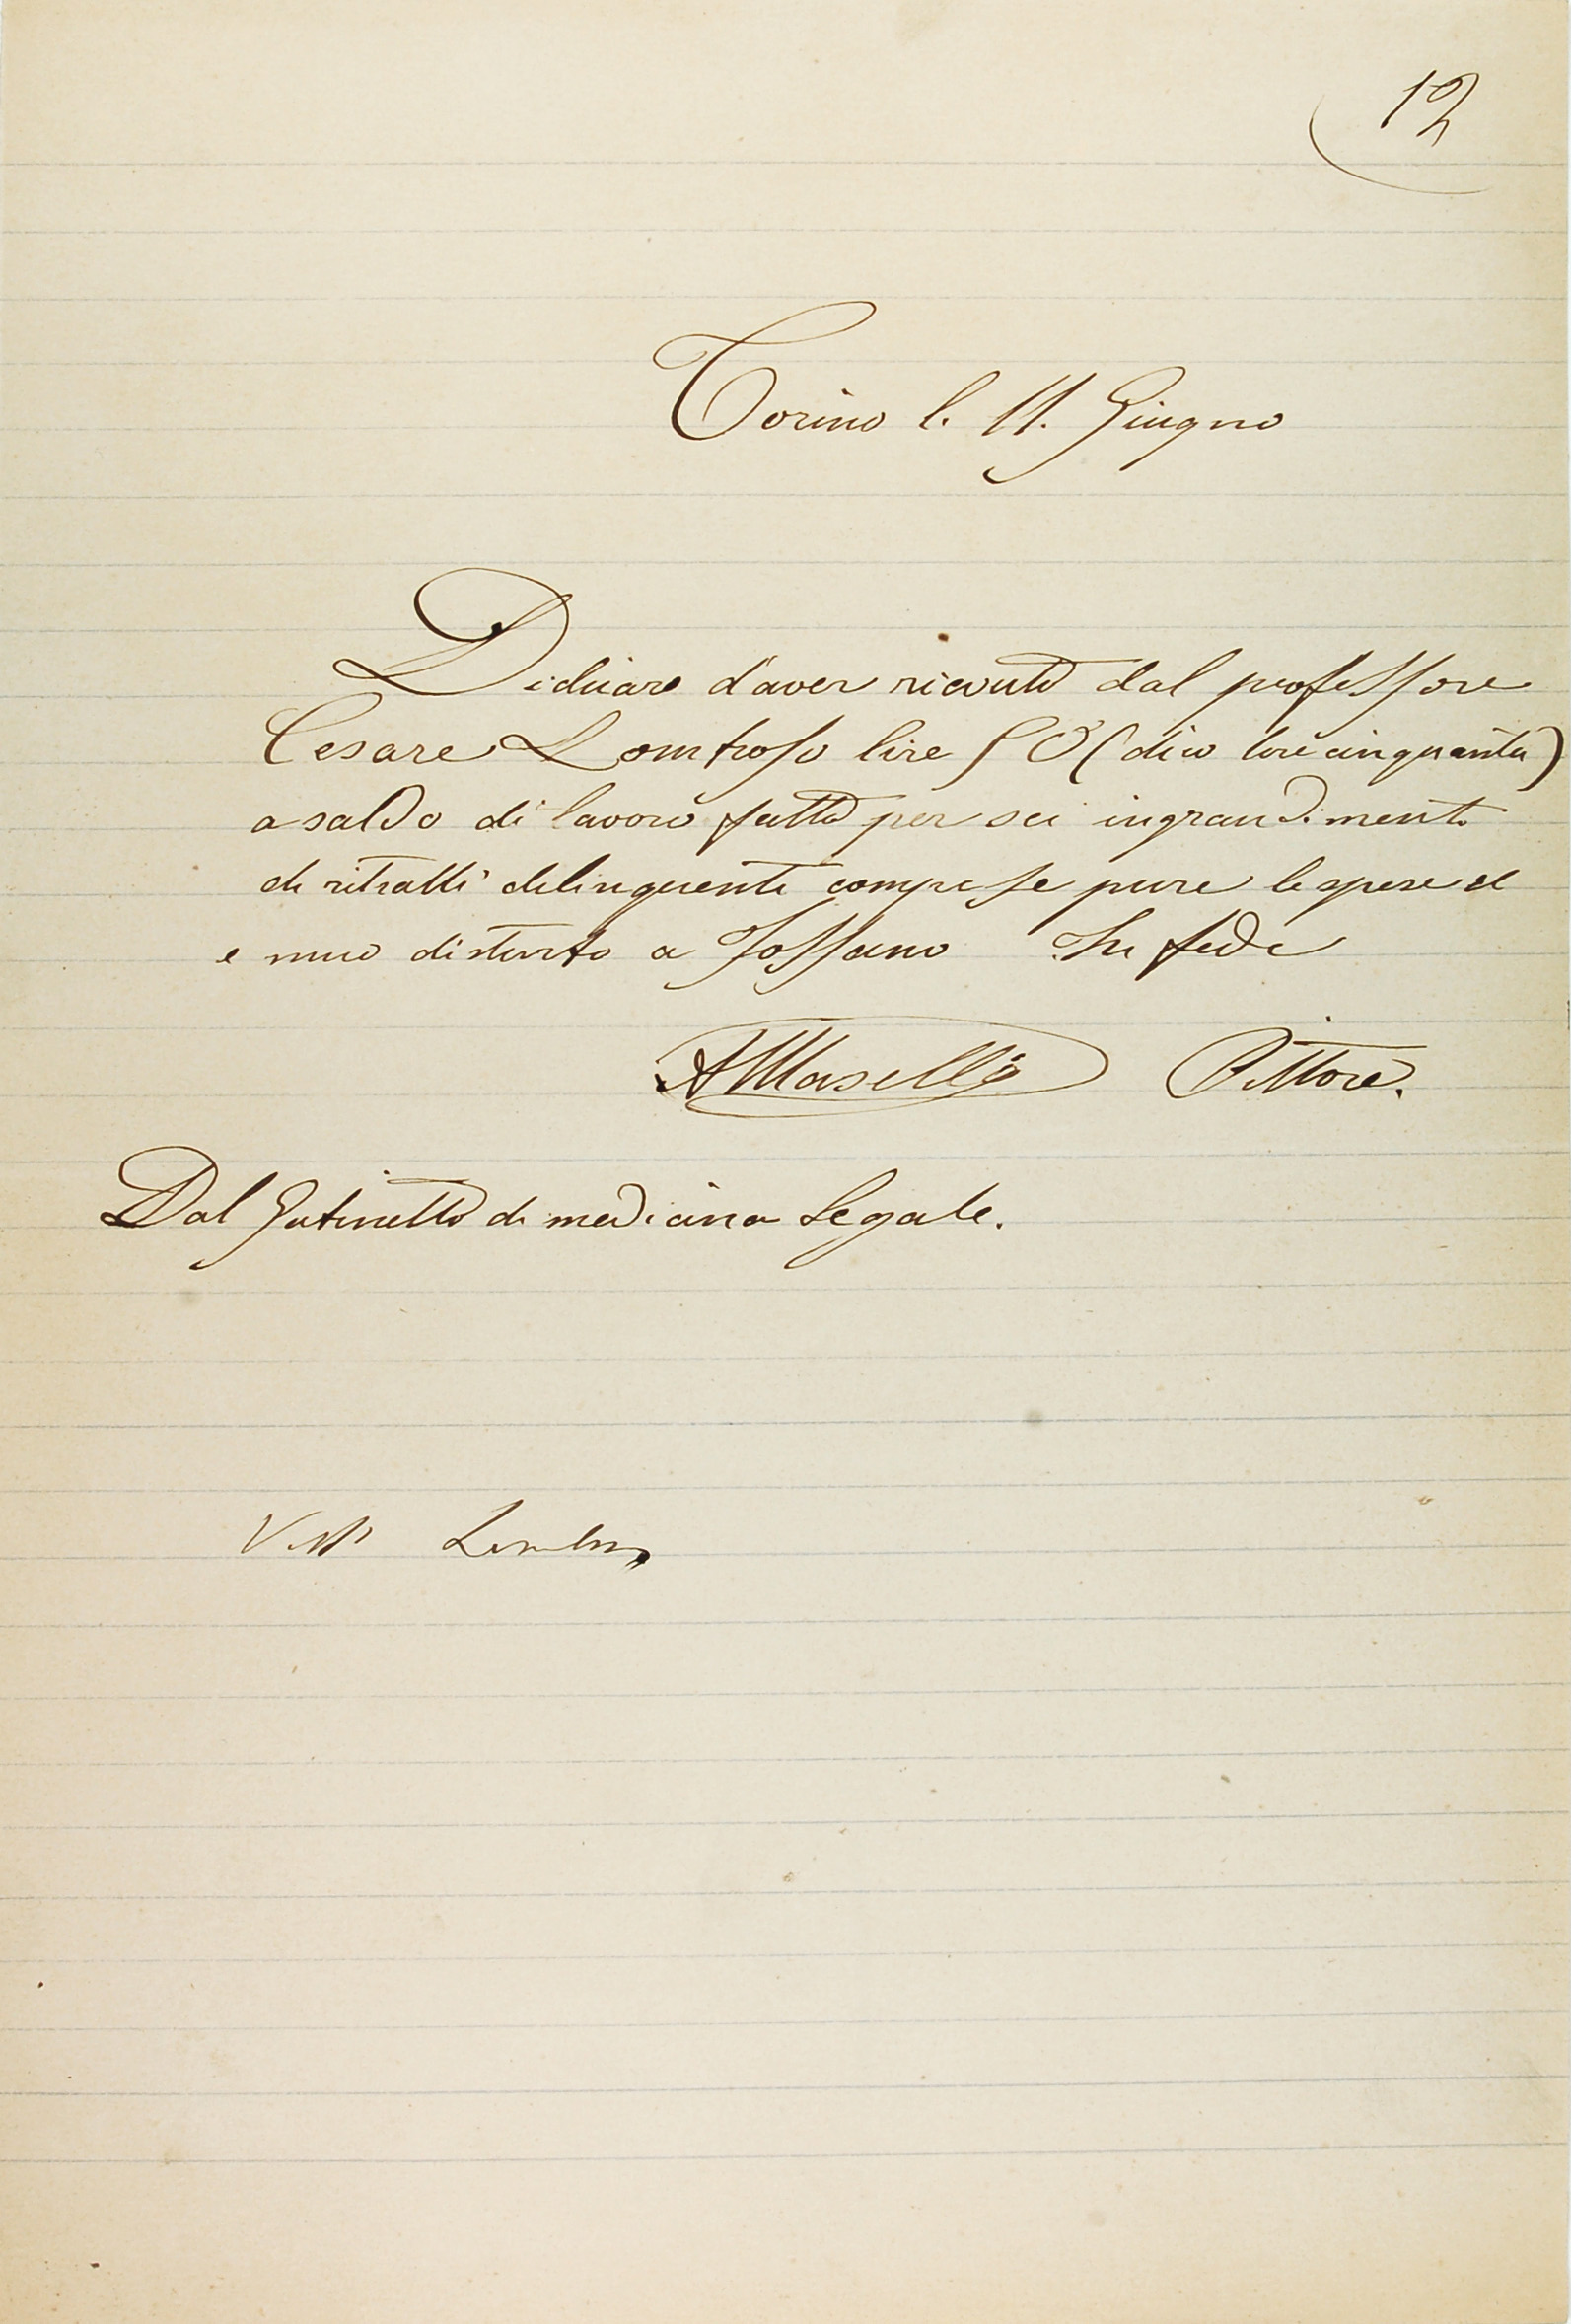 12
Torino l. 11. Giugno
Dichiaro d'aver ricevuto dal professore
Cesare Lombroso lire 50 (dico lire cinquanta)
a saldo di lavoro fatto per sei ingrandimenti
di ritratti delinquenti comprese pure le spese
e mio disturbo a Fossano In fede
AMaselli Pittore.
Dal Gabinetto di medicina legale.
Visto Lombroso